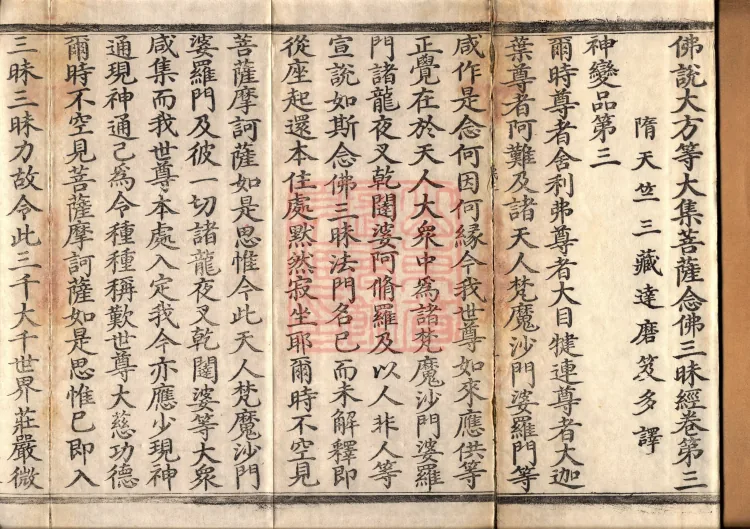 佛說大方等大集菩薩念佛三昧經卷第三
隋天竺三藏達磨笈多譯
神變品第三
爾時尊者舍利弗尊者大目犍連尊者大迦
葉尊者阿難及諸天人梵魔沙門婆羅門等
咸作是念何因何緣今我世尊如來應供等
正覺在於天人大眾中為諸梵魔沙門婆羅
門諸龍夜叉乾闥婆阿脩羅及以人非人等
宣說如斯念佛三昧法門名已而未解釋即
從座起還本住處默然寂坐耶爾時不空見
菩薩摩訶薩如是思惟今此天人梵魔沙門
婆羅門及彼一切諸龍夜叉乾闥婆等大眾
咸集而我世尊本處入定我今亦應少現神
通現神通已為令種種稱歎世尊大慈功德
爾時不空見菩薩摩訶薩如是思惟已即入
三昧三昧力故令此三千大千世界莊嚴微